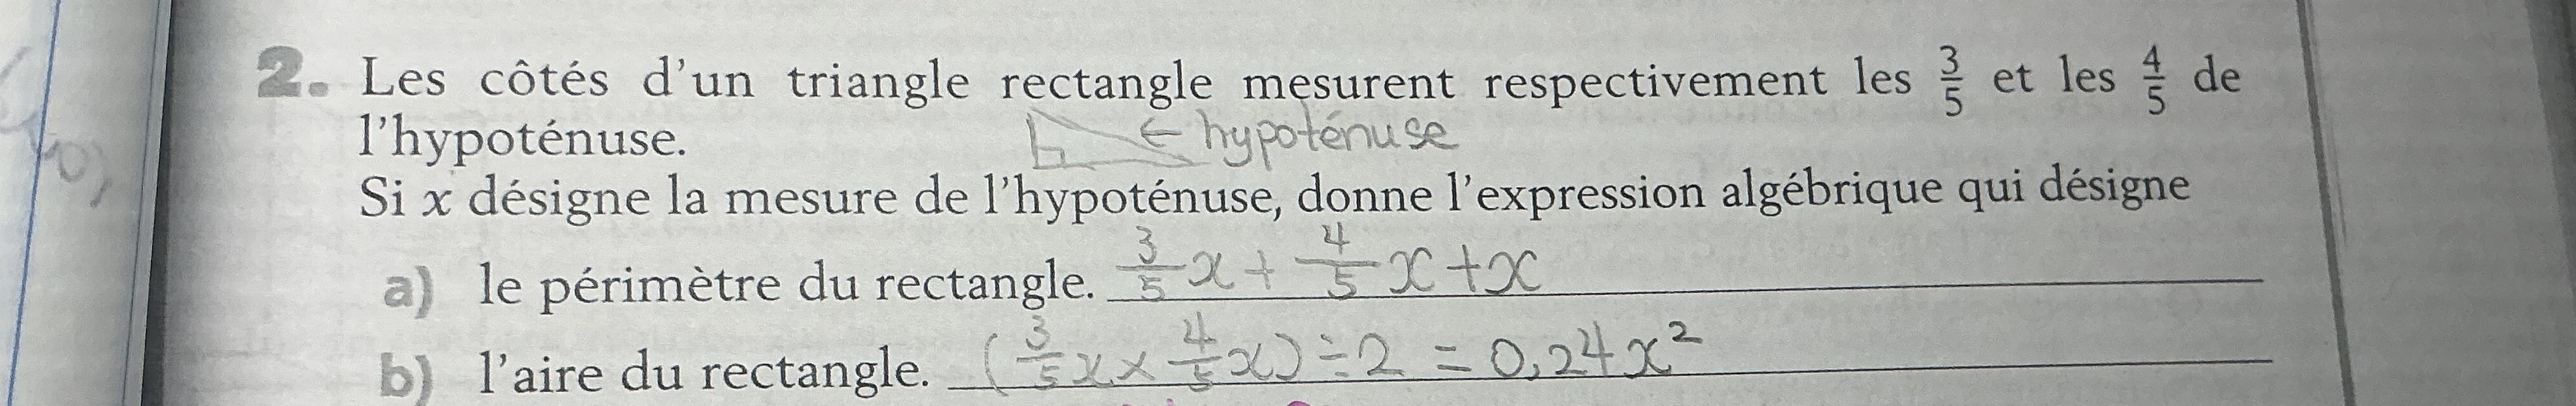 2. Les côtés d'un triangle rectangle mesurent respectivement les 3/5 et les 4/5 de
l'hypoténuse. ← hypoténuse
Si x désigne la mesure de l'hypoténuse, donne l'expression algébrique qui désigne
a) le périmètre du rectangle. 3/5 x + 4/5 x + x
b) l'aire du rectangle. (3/5 x × 4/5 x) ÷ 2 = 0,24x²